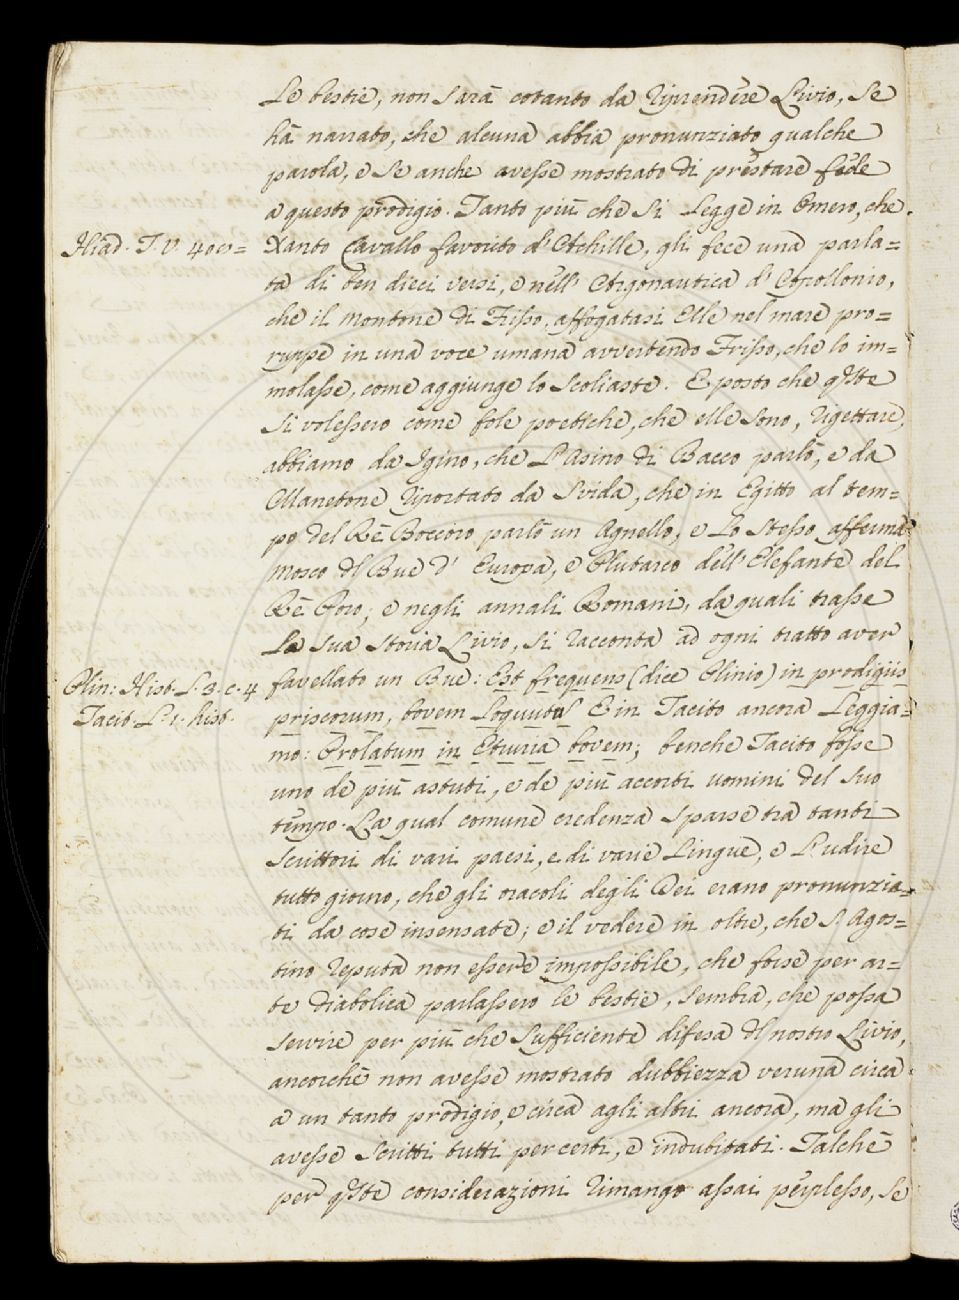 Le bestie, non sarà cotanto da riprendere Livio, se
hà narrato, che alcuna abbia pronunziato qualche
parola, e se anche avesse mostrato di prestare fede
a questo prodigio. Tanto più che si legge in Omero, che
Iliad. T. v. 400=
Xanto Cavallo favorito d'Achille, gli fece una parla=
ta di ben dieci versi, e nell'Argonautica d'Apollonio,
che il montone di Frisso, affogatasi Elle nel mare pro=
ruppe in una voce umana avvertendo Frisso, che lo im=
molasse, come aggiunge lo Scoliaste. E posto che q.ste
si volessero come fole poetiche, che elle sono, rigettare,
abbiamo da Igino, che l'Asino di Bacco parlò, e da
Manetone riportato da Svida, che in Egitto al tem=
po del Rè Boccoro parlò un Agnello, e lo stesso afferma
Mosco dl Bue d'Europa, e Plutarco dell'Elefante del
Rè Poro; e negli annali Romani, da quali trasse
la sua storia Livio, si racconta ad ogni tratto aver
Plin: Hist. L. 3. c. 4
favellato un Bue: Est frequens (dice Plinio) in prodigiis
Tacit. L. 1. hist.
priscorum, bovem loquutu' E in Tacito ancora leggia=
mo: Prolatum in Etruria bovem; benche Tacito fosse
uno de più astuti, e de più accorti uomini del suo
tempo. La qual comune credenza sparse tra tanti
Scrittori di vari paesi, e di varie lingue, e l'udire
tutto giorno, che gli oracoli degli Dei erano pronunzia=
ti da cose insensate; e il vedere in oltre, che S. Agos=
tino reputa non essere impossibile, che forse per ar=
te diabolica parlassero le bestie, sembra, che possa
servire per più che sufficiente difesa dl nostro Livio,
ancorchè non avesse mostrato dubbiezza veruna circa
a un tanto prodigio, e circa agli altri ancora, ma gli
avesse scritti tutti per certi, e indubitati. Talchè
per q.ste considerazioni rimango assai perplesso, se